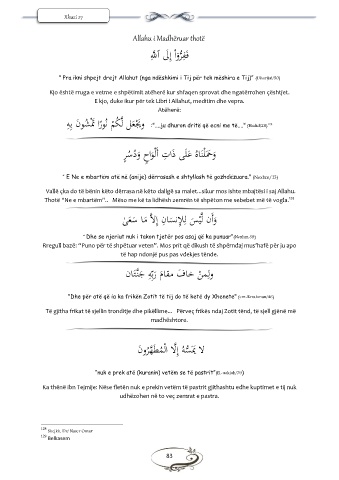 Xhuzi 27
Allahu i Madhëruar thotë
فَفِرُّوا إِلَى اللَّهِ
" Pra ikni shpejt drejt Allahut (nga ndëshkimi i Tij për tek mëshira e Tij)"
Kjo është rruga e vetme e shpëtimit atëherë kur shfaqen sprovat dhe ngatërrohen çështjet.
E kjo, duke ikur për tek Libri i Allahut, meditim dhe vepra.
Atëherë:
وَيَجْعَل لَّكُمْ نُورًا تَمْشُونَ بِهِ :"....ju dhuron dritë që ecni me të...."
وَحَمَلْنَاهُ عَلَى ذَاتِ أَلْوَاحٍ وَدُسُرٍ
" E Ne e mbartëm atë në (anije) dërrasash e shtyllash të gozhdëzuara."
Vallë çka do të bënin këto dërrasa në këto dallgë sa malet...sikur mos ishte mbajtësi i saj Allahu.
Thotë "Ne e mbartëm".. Mëso me kë ta lidhësh zemrën të shpëton me sebebet më të vogla.
وَأَن لَّيْسَ لِلْإِنسَانِ إِلاَّ مَا سَعَىٰ
" Dhe se njeriut nuk i takon tjetër pos asaj që ka punuar"
Rregull bazë: "Puno për të shpëtuar veten". Mos prit që dikush të shpërndaj mus'hafë për ju apo
të hap ndonjë pus pas vdekjes tënde.
وَلِمَنْ خَافَ مَقَامَ رَبِّهِ جَنَّتَانِ
"Dhe për atë që ia ka frikën Zotit të tij do të ketë dy Xhenete"
Të gjitha frikat të sjellin tronditje dhe pikëllime... Përveç frikës ndaj Zotit tënd, të sjell gjënë më
madhështore.
لا يَمَسُّهُ إِلَّا الْمُطَهَّرُونَ
"nuk e prek atë (kuranin) vetëm se të pastrit"
Ka thënë Ibn Tejmije: Nëse fletën nuk e prekin vetëm të pastrit gjithashtu edhe kuptimet e tij nuk
udhëzohen në to veç zemrat e pastra.
Belkasem
83